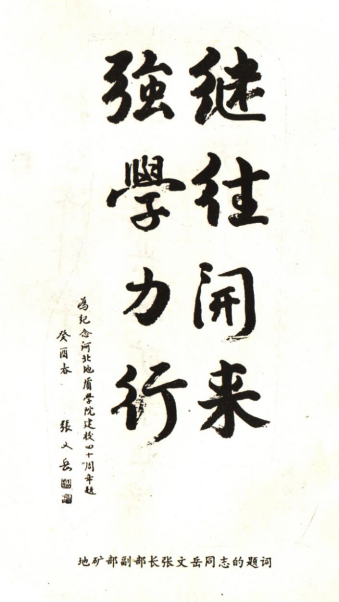 继往开来
強學力行
为纪念河北地质学院建校四十周年题
癸酉春 张文岳
地矿部副部长张文岳同志的题词